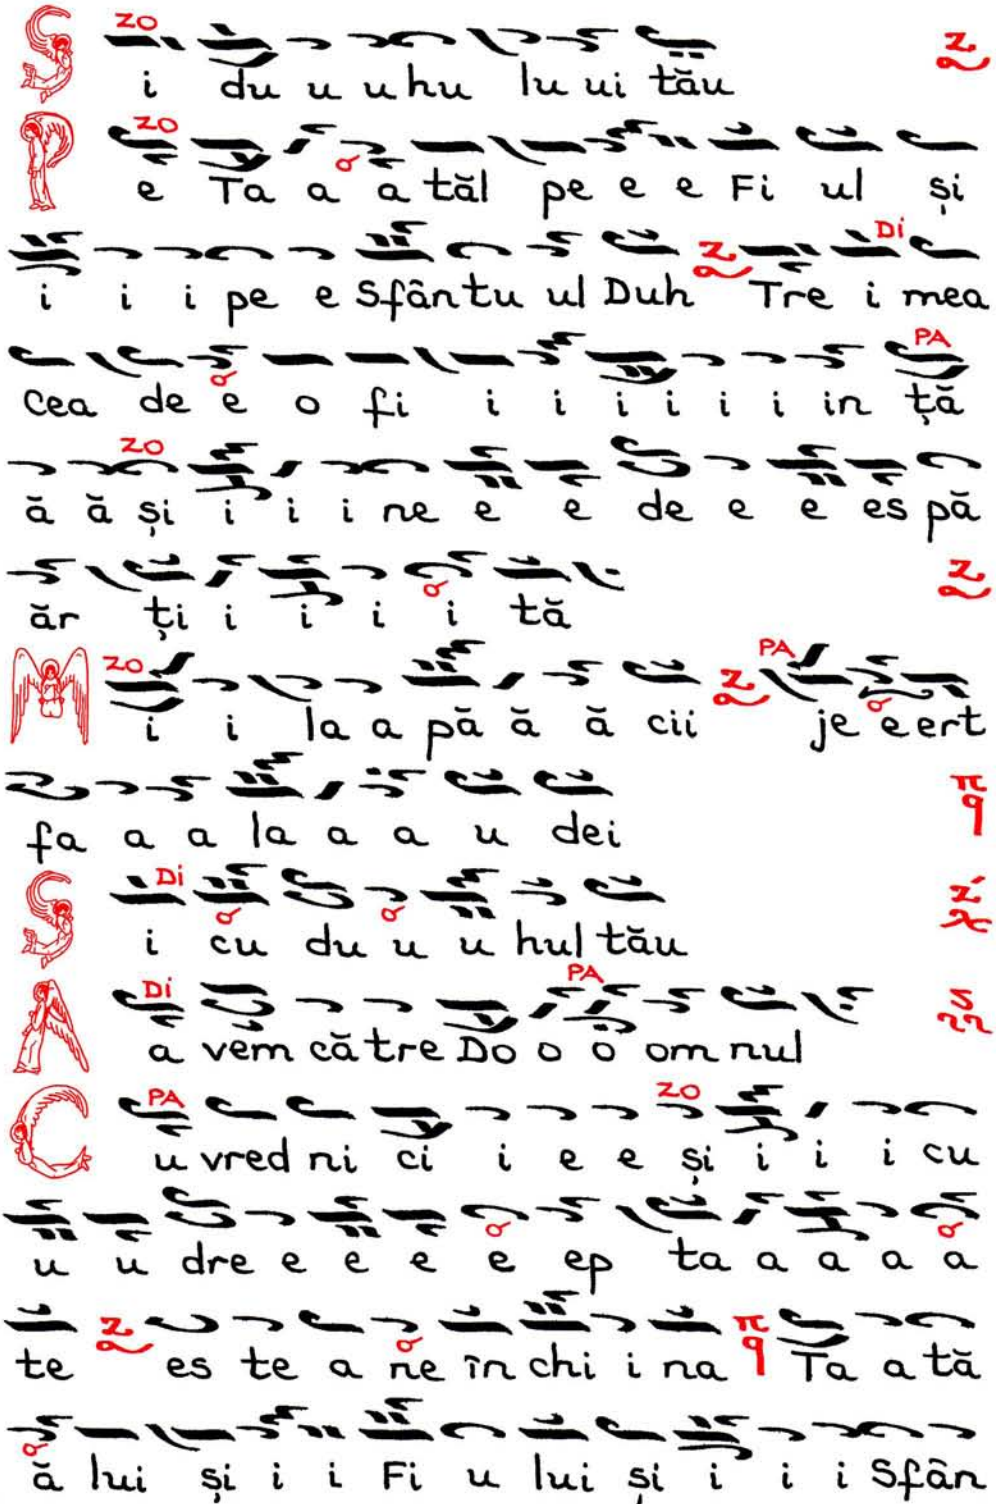 ZO
S i du u u hu lu ui tău
ZO
P e Ta a a tăl pe e e Fi ul și
Di
i i i pe e Sfântu ul Duh Tre i mea
PA
cea de e o fi i i i i i i in ță
ZO
ă ă și i i i ne e e de e e es pă
ăr ți i i i i tă
ZO PA
M i i la a pă ă ă cii je e ert
π q
fa a a la a a u dei
Di
S i cu du u u hul tău
Di PA
A a vem că tre Do o o om nul
PA ZO
C u vred ni ci i e e și i i i cu
u u dre e e e e ep ta a a a a
π q
te es te a ne în chi i na Ta a tă
ă lui și i i Fi u lui și i i i Sfân